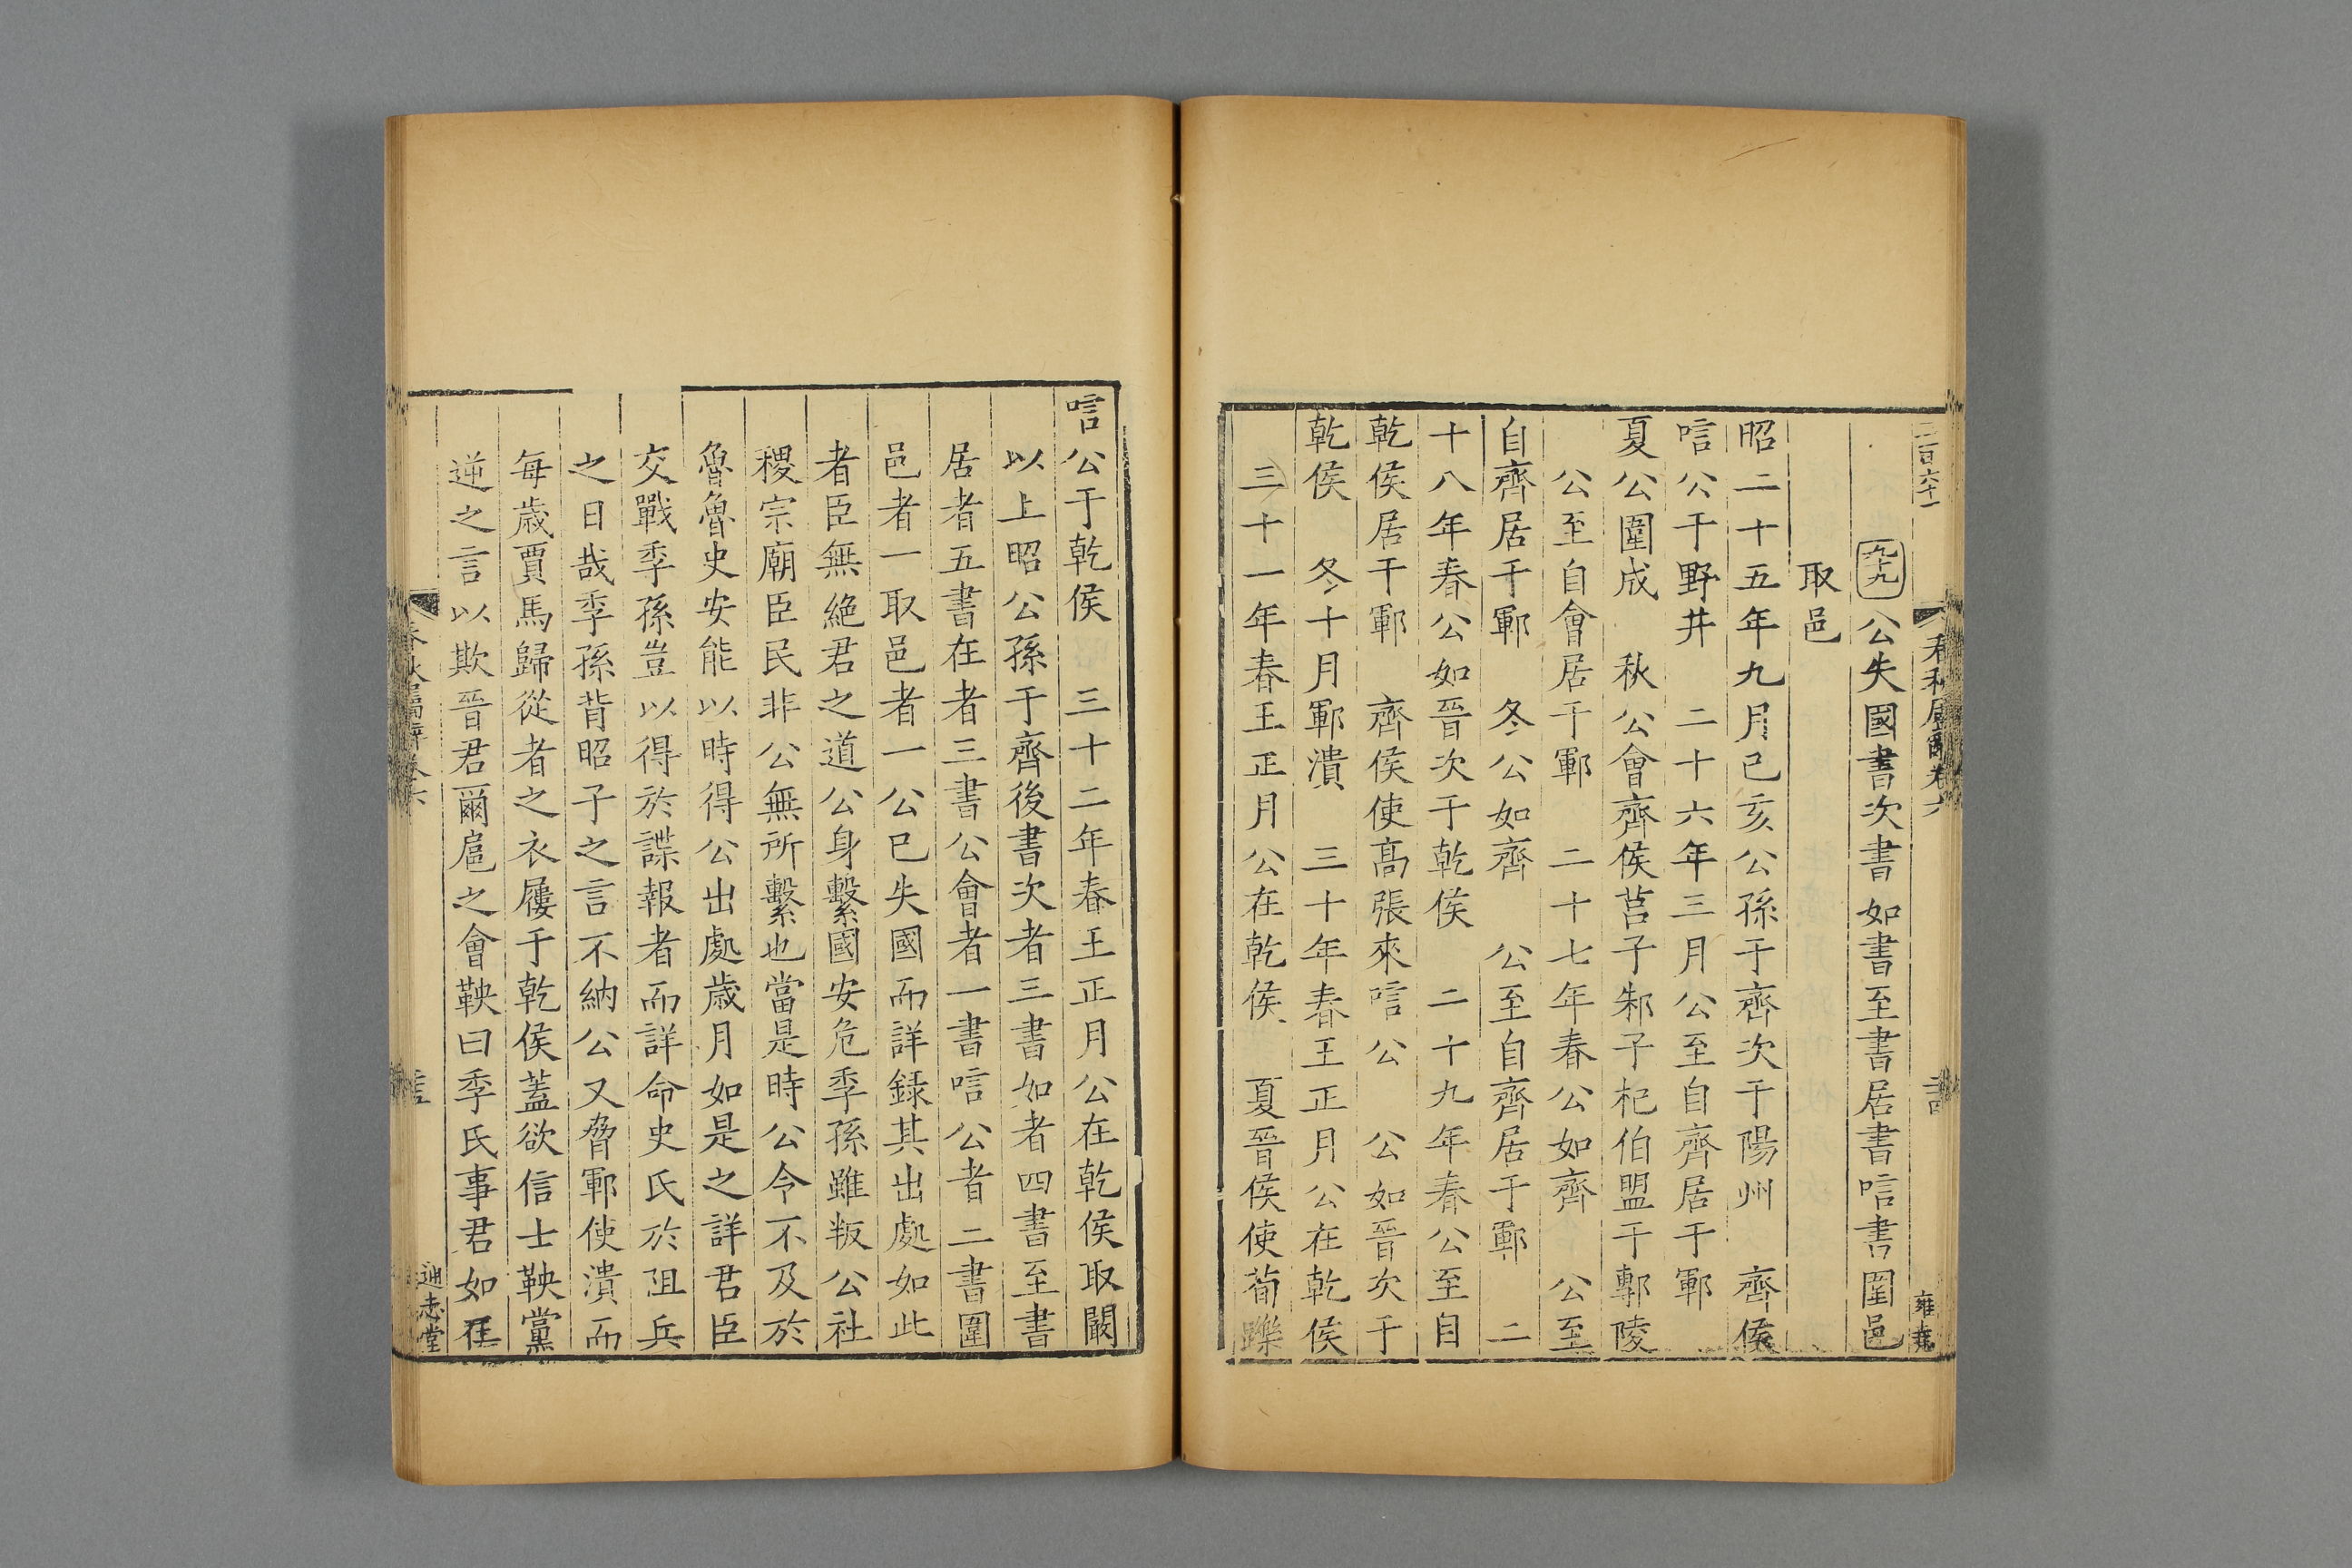 二百六十一
九十九 公失國書次書如書至書居書唁書圍邑
取邑
昭二十五年九月己亥公孫于齊次于陽州 齊侯
唁公于野井 二十六年三月公至自齊居于鄆
夏公圍成 秋公會齊侯莒子邾子杞伯盟于鄟陵
公至自會居于鄆 二十七年春公如齊 公至
自齊居于鄆 冬公如齊 公至自齊居于鄆 二
十八年春公如晉次于乾侯 二十九年春公至自
乾侯居于鄆 齊侯使高張來唁公 公如晉次于
乾侯 冬十月鄆潰 三十年春王正月公在乾侯
三十一年春王正月公在乾侯 夏晉侯使荀躒
唁公于乾侯 三十二年春王正月公在乾侯取闞
以上昭公孫于齊後書次者三書如者四書至書
居者五書在者三書公會者一書唁公者二書圍
邑者一取邑者一公已失國而詳錄其出處如此
者臣無絕君之道公身繫國安危季孫雖叛公社
稷宗廟臣民非公無所繫也當是時公令不及於
魯魯史安能以時得公出處歲月如是之詳君臣
交戰季孫豈以得於諜報者而詳命史氏於阻兵
之日哉季孫背昭子之言不納公又脅鄆使潰而
每歲賈馬歸從者之衣屨于乾侯蓋欲信士鞅黨
逆之言以欺晉君爾扈之會鞅曰季氏事君如在
通志堂